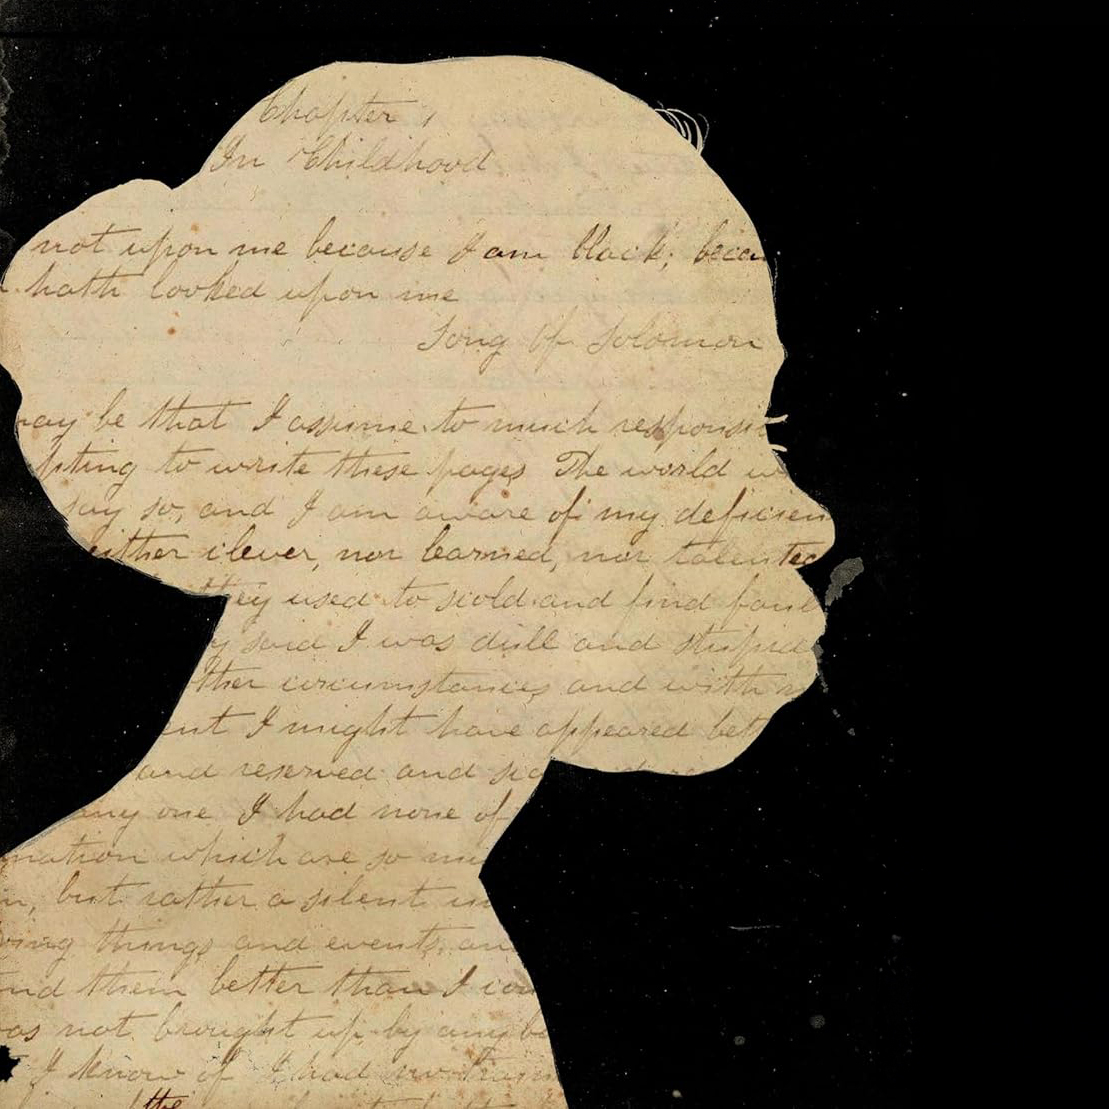 Chapter 1
In Childhood
not upon me because I am black; becau
hath looked upon me
Song of Solomon
may be that I assume to much responsi
pting to write these pages The world w
say so, and I am aware of my deficien
either clever, nor learned, nor talented
they used to scold and find faul
y said I was dull and stupid
ther circumstances and with
ent I might have appeared bett
and reserved and
any one I had none of
mation which are so mu
n, but rather a silent un
ving things and events, an
nd them better than I cou
as not brought up by any bo
I know of I had no train
the